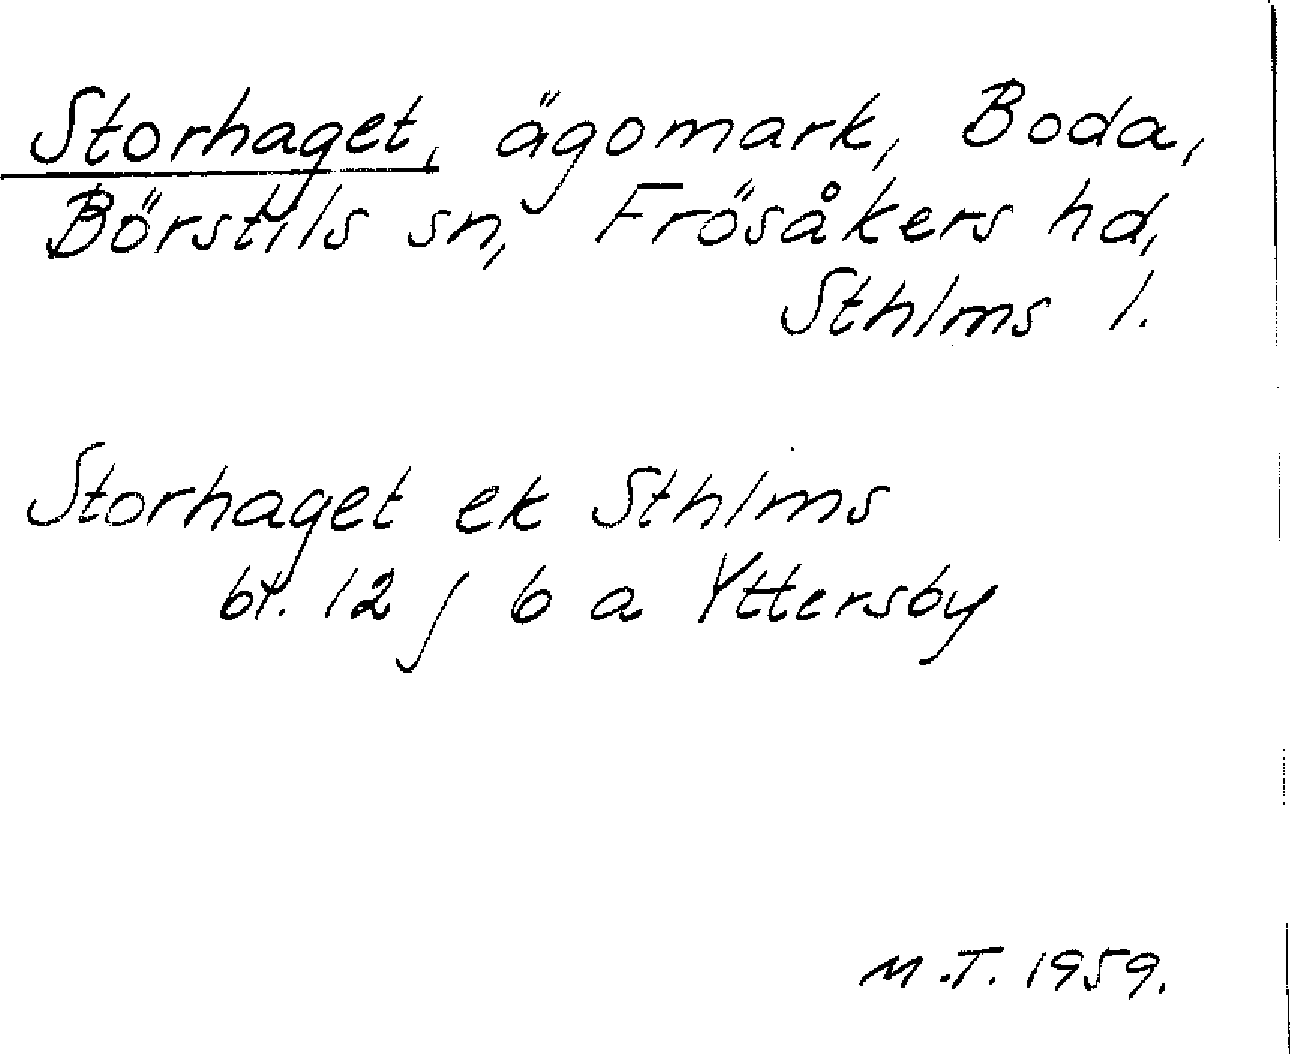 Storhaget, ägomark, Boda,
Börstils sn, Frösåkers hd,
Sthlms l.
Storhaget ek Sthlms
bt. 12 j 6 a Yttersby
M.T. 1959.